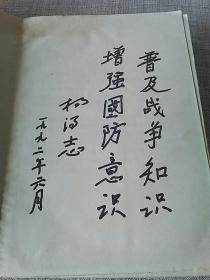 普及战争知识
增强國防意识
杨得志
一九九二年六月